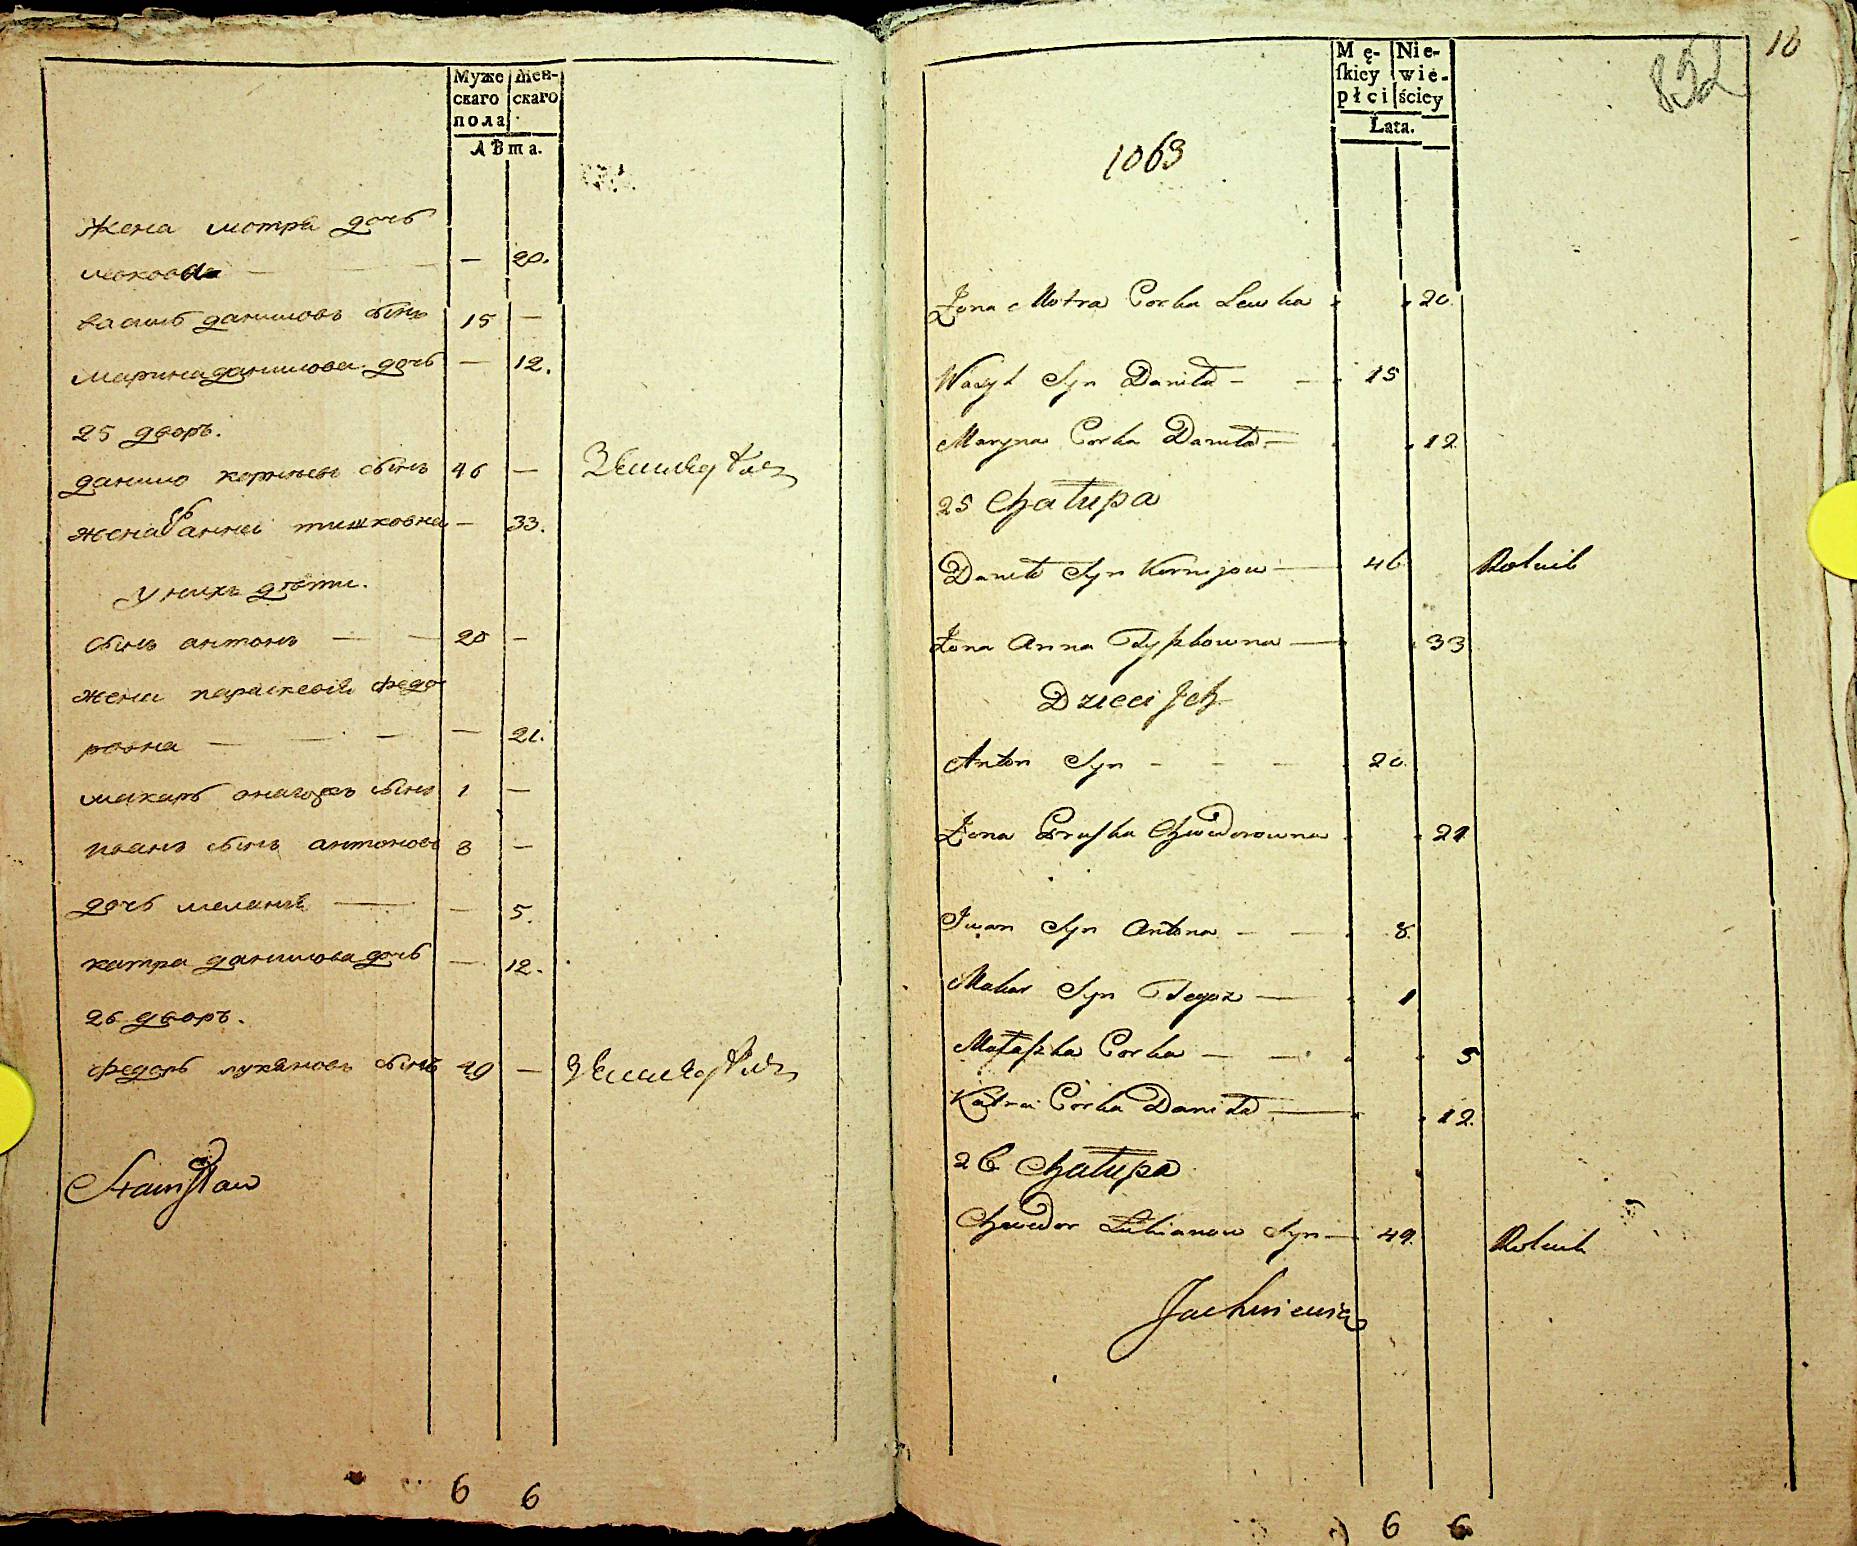 Муже
скаго
пола
Жен-
скаго
Лѣта.
жена мотра дочь
— 20.
василь даниловъ сынъ 15 —
марина данилова дочь — 12.
25 дворъ.
данило корнѣевъ сынъ 46 —
жена анна тишковна — 33.
у нихъ дѣти.
сынъ антонъ — — 20 —
жена параскевія федо
ровна — — — — 21.
макаръ сынъ 1 —
иванъ сынъ антоновъ 8 —
дочь меланія — — 5.
катра данилова дочь — 12.
26 дворъ.
федоръ лукяновъ сынъ 49 —
6 6
Mę-
skiey
płci
Nie-
wie-
ściey
Lata.
852
10
1063
Żona Motra Corka Lewka 20.
Wasyl Syn Daniła — — 15
Maryna Corka Daniła — 12
25 Chałupa
Daniło Syn Kornijow — 46 Rolnik
Żona Anna Tyszkowna — 33
Dzieci Jch
Anton Syn — — — 20.
Żona Praska Chwedorowna 21
Jwan Syn Antona — — 8.
Makar Syn Tegoż — 1
Małaszka Corka — — 5
Katra Corka Daniła — 12.
26 Chałupa
Chwedor Lukianow Syn — 49. Rolnik
Jachniewicz
6 6